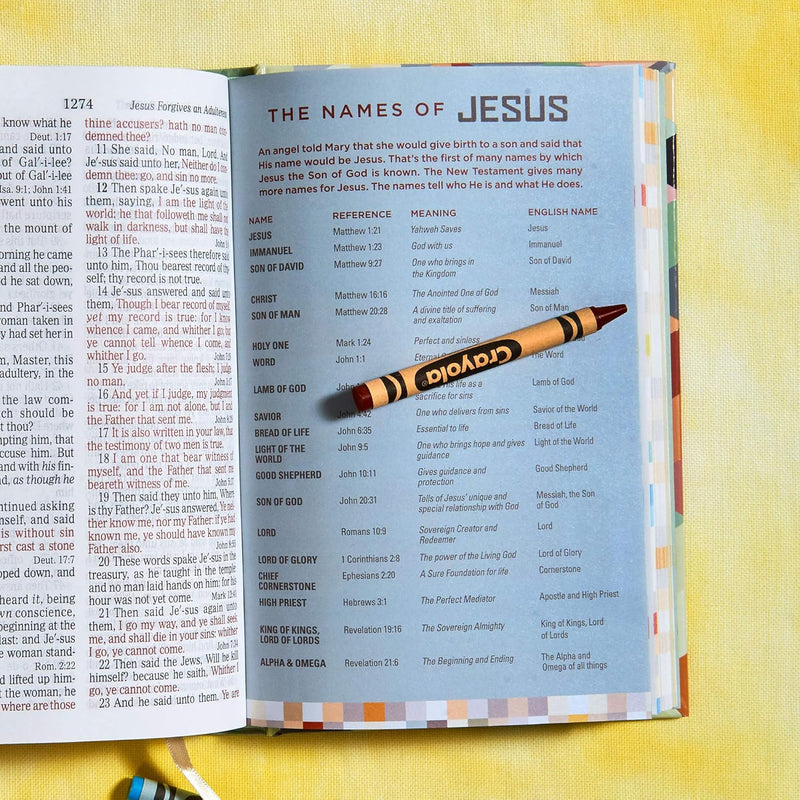 1274
Jesus Forgives an Adulteress
know what he
Deut. 1:17
and said unto
of Gal'-i-lee?
out of Gal'-i-lee
Isa. 9:1; John 1:41
went unto his
the mount of
morning he came
and all the peo-
d he sat down,
nd Phar'-i-sees
woman taken in
y had set her in
m, Master, this
adultery, in the
the law com-
ch should be
t thou?
mpting him, that
ccuse him. But
nd with his fin-
d, as though he
him
ntinued asking
mself, and said
is without sin
rst cast a stone
Deut. 17:7
oped down, and
heard it, being
wn conscience,
beginning at the
last: and Je'-sus
e woman stand-
Rom. 2:22
d lifted up him-
t the woman, he
where are those
thine accusers? hath no man con-
demned thee?
11 She said, No man, Lord. And
Je'-sus said unto her, Neither do I con-
demn thee: go, and sin no more.
12 Then spake Je'-sus again unto
them, saying, I am the light of the
world: he that followeth me shall not
walk in darkness, but shall have the
light of life.
13 The Phar'-i-sees therefore said
unto him, Thou bearest record of thy
self; thy record is not true.
14 Je'-sus answered and said unto
them, Though I bear record of myself,
yet my record is true: for I know
whence I came, and whither I go; but
ye cannot tell whence I come, and
whither I go.
15 Ye judge after the flesh; I judge
no man.
16 And yet if I judge, my judgment
is true: for I am not alone, but I and
the Father that sent me.
17 It is also written in your law, that
the testimony of two men is true.
18 I am one that bear witness of
myself, and the Father that sent me
beareth witness of me.
19 Then said they unto him, Where
is thy Father? Je'-sus answered, Ye nei-
ther know me, nor my Father: if ye had
known me, ye should have known my
Father also.
20 These words spake Je'-sus in the
treasury, as he taught in the temple:
and no man laid hands on him; for his
hour was not yet come.
21 Then said Je'-sus again unto
them, I go my way, and ye shall seek
me, and shall die in your sins: whither
I go, ye cannot come.
22 Then said the Jews, Will he kill
himself? because he saith, Whither I
go, ye cannot come.
23 And he said unto them, Ye are
THE NAMES OF JESUS
An angel told Mary that she would give birth to a son and said that
His name would be Jesus. That's the first of many names by which
Jesus the Son of God is known. The New Testament gives many
more names for Jesus. The names tell who He is and what He does.
NAME REFERENCE MEANING ENGLISH NAME
JESUS Matthew 1:21 Yahweh Saves Jesus
IMMANUEL Matthew 1:23 God with us Immanuel
SON OF DAVID Matthew 9:27 One who brings in Son of David
the Kingdom
CHRIST Matthew 16:16 The Anointed One of God Messiah
SON OF MAN Matthew 20:28 A divine title of suffering Son of Man
and exaltation
HOLY ONE Mark 1:24 Perfect and sinless
WORD John 1:1 Eternal The Word
LAMB OF GOD his life as a Lamb of God
sacrifice for sins
SAVIOR 4:42 One who delivers from sins Savior of the World
BREAD OF LIFE John 6:35 Essential to life Bread of Life
LIGHT OF THE John 9:5 One who brings hope and gives Light of the World
WORLD guidance
GOOD SHEPHERD John 10:11 Gives guidance and Good Shepherd
protection
SON OF GOD John 20:31 Tells of Jesus' unique and Messiah, the Son
special relationship with God of God
LORD Romans 10:9 Sovereign Creator and Lord
Redeemer
LORD OF GLORY 1 Corinthians 2:8 The power of the Living God Lord of Glory
CHIEF Ephesians 2:20 A Sure Foundation for life Cornerstone
CORNERSTONE
HIGH PRIEST Hebrews 3:1 The Perfect Mediator Apostle and High Priest
KING OF KINGS, Revelation 19:16 The Sovereign Almighty King of Kings, Lord
LORD OF LORDS of Lords
ALPHA & OMEGA Revelation 21:6 The Beginning and Ending The Alpha and
Omega of all things
Crayola